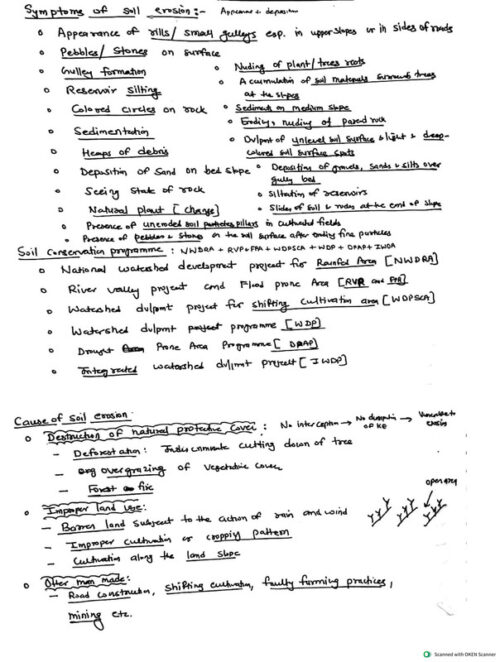 Symptoms of soil erosion:- Appearance + deposition
o Appearance of rills/ small gulleys esp. in upper slopes or in sides of roads
o Pebbles/ Stones on surface
o Gulley formation
o Reservoir silting
o Colored circles on rock
o Sedimentation
o Heaps of debris
o Deposition of Sand on bed slope
o Seeing State of rock
o Natural plant [change]
o Nuding of plant/trees roots
o Accumulation of soil materials surrounds trees at the slopes
o Sediment on medium slope
o Eroding, nuding of parent rock
o Dvlpmt of unlevel soil surface & light & deep-colored soil surface spots
o Deposition of gravels, sands & silts over gully bed
o Siltation of reservoirs
o Slides of soil & rocks at the end of slope
o Presence of uneroded soil particles pillars in cultivated fields
o Presence of pebbles & stones on the soil surface after eroding fine particles
Soil Conservation programme: NWDRA + RVP+FPA + WDPSCA + WDP + DPAP + IWDP
o National watershed development project for Rainfed Area [NWDRA]
o River valley project and Flood prone Area [RVP and FPR]
o Watershed dvlpmt project for shifting cultivation area [WDPSCA]
o Watershed dvlpmt project programme [WDP]
o Drought Prone Area Programme [DPAP]
o Integrated watershed dvlpmt project [IWDP]
Cause of soil erosion:
o Destruction of natural protective cover: No interception → No dissipation of KE → Vulnerable to erosion
- Deforestation: Indiscriminate cutting down of tree
- overgrazing of vegetative cover
- Forest fire
o Improper land use:
- Barren land subject to the action of rain and wind
- Improper cultivation or cropping pattern
- Cultivation along the land slope
open area
o Other man made:
- Road construction, shifting cultivation, faulty farming practices,
mining etc.
Scanned with OKEN Scanner